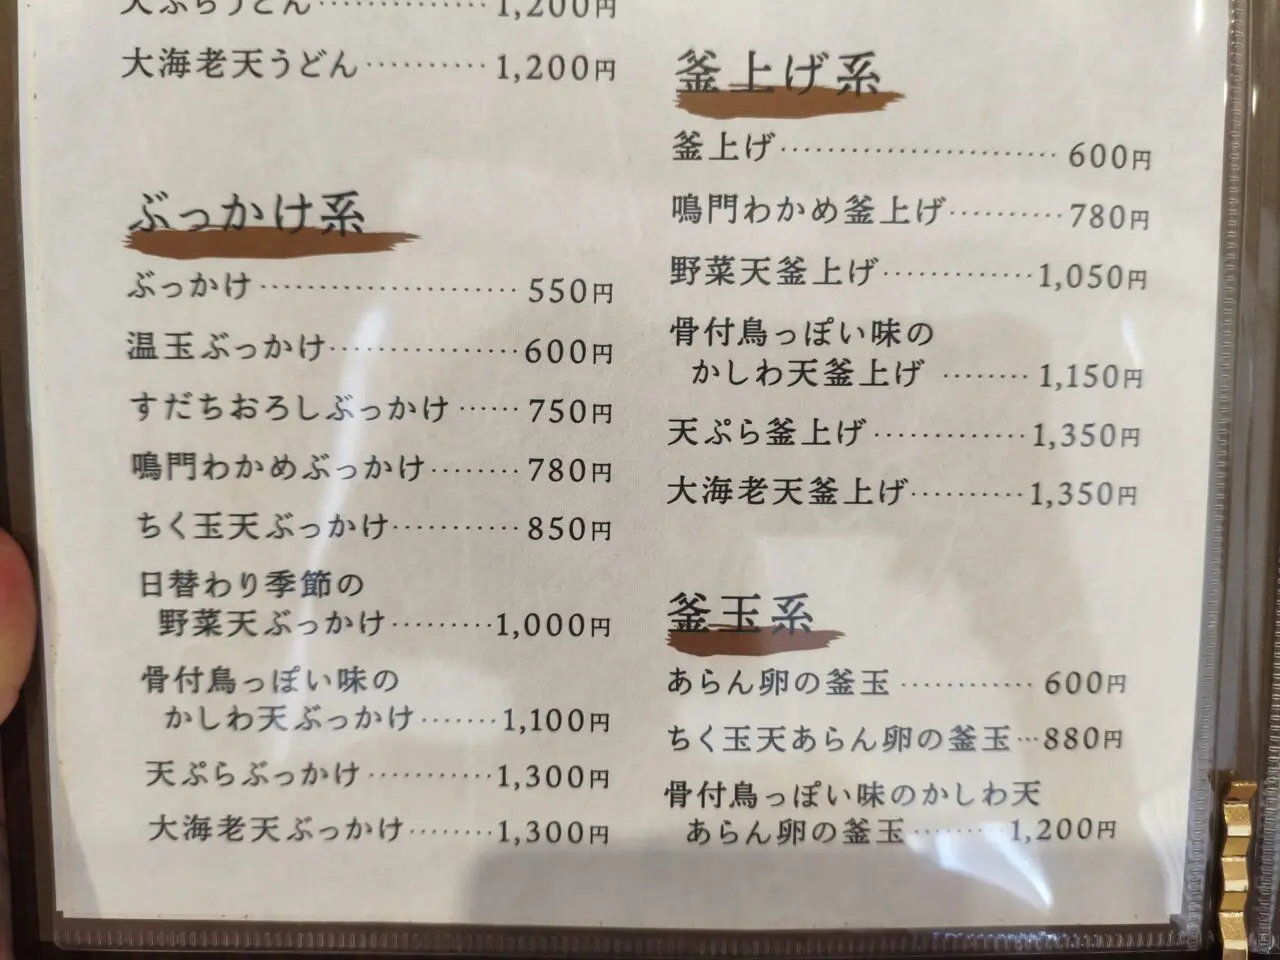 天ぷらうどん 1,200円
大海老天うどん 1,200円
ぶっかけ系
ぶっかけ 550円
温玉ぶっかけ 600円
すだちおろしぶっかけ 750円
鳴門わかめぶっかけ 780円
ちく玉天ぶっかけ 850円
日替わり季節の
野菜天ぶっかけ 1,000円
骨付鳥っぽい味の
かしわ天ぶっかけ 1,100円
天ぷらぶっかけ 1,300円
大海老天ぶっかけ 1,300円
釜上げ系
釜上げ 600円
鳴門わかめ釜上げ 780円
野菜天釜上げ 1,050円
骨付鳥っぽい味の
かしわ天釜上げ 1,150円
天ぷら釜上げ 1,350円
大海老天釜上げ 1,350円
釜玉系
あらん卵の釜玉 600円
ちく玉天あらん卵の釜玉 880円
骨付鳥っぽい味のかしわ天
あらん卵の釜玉 1,200円